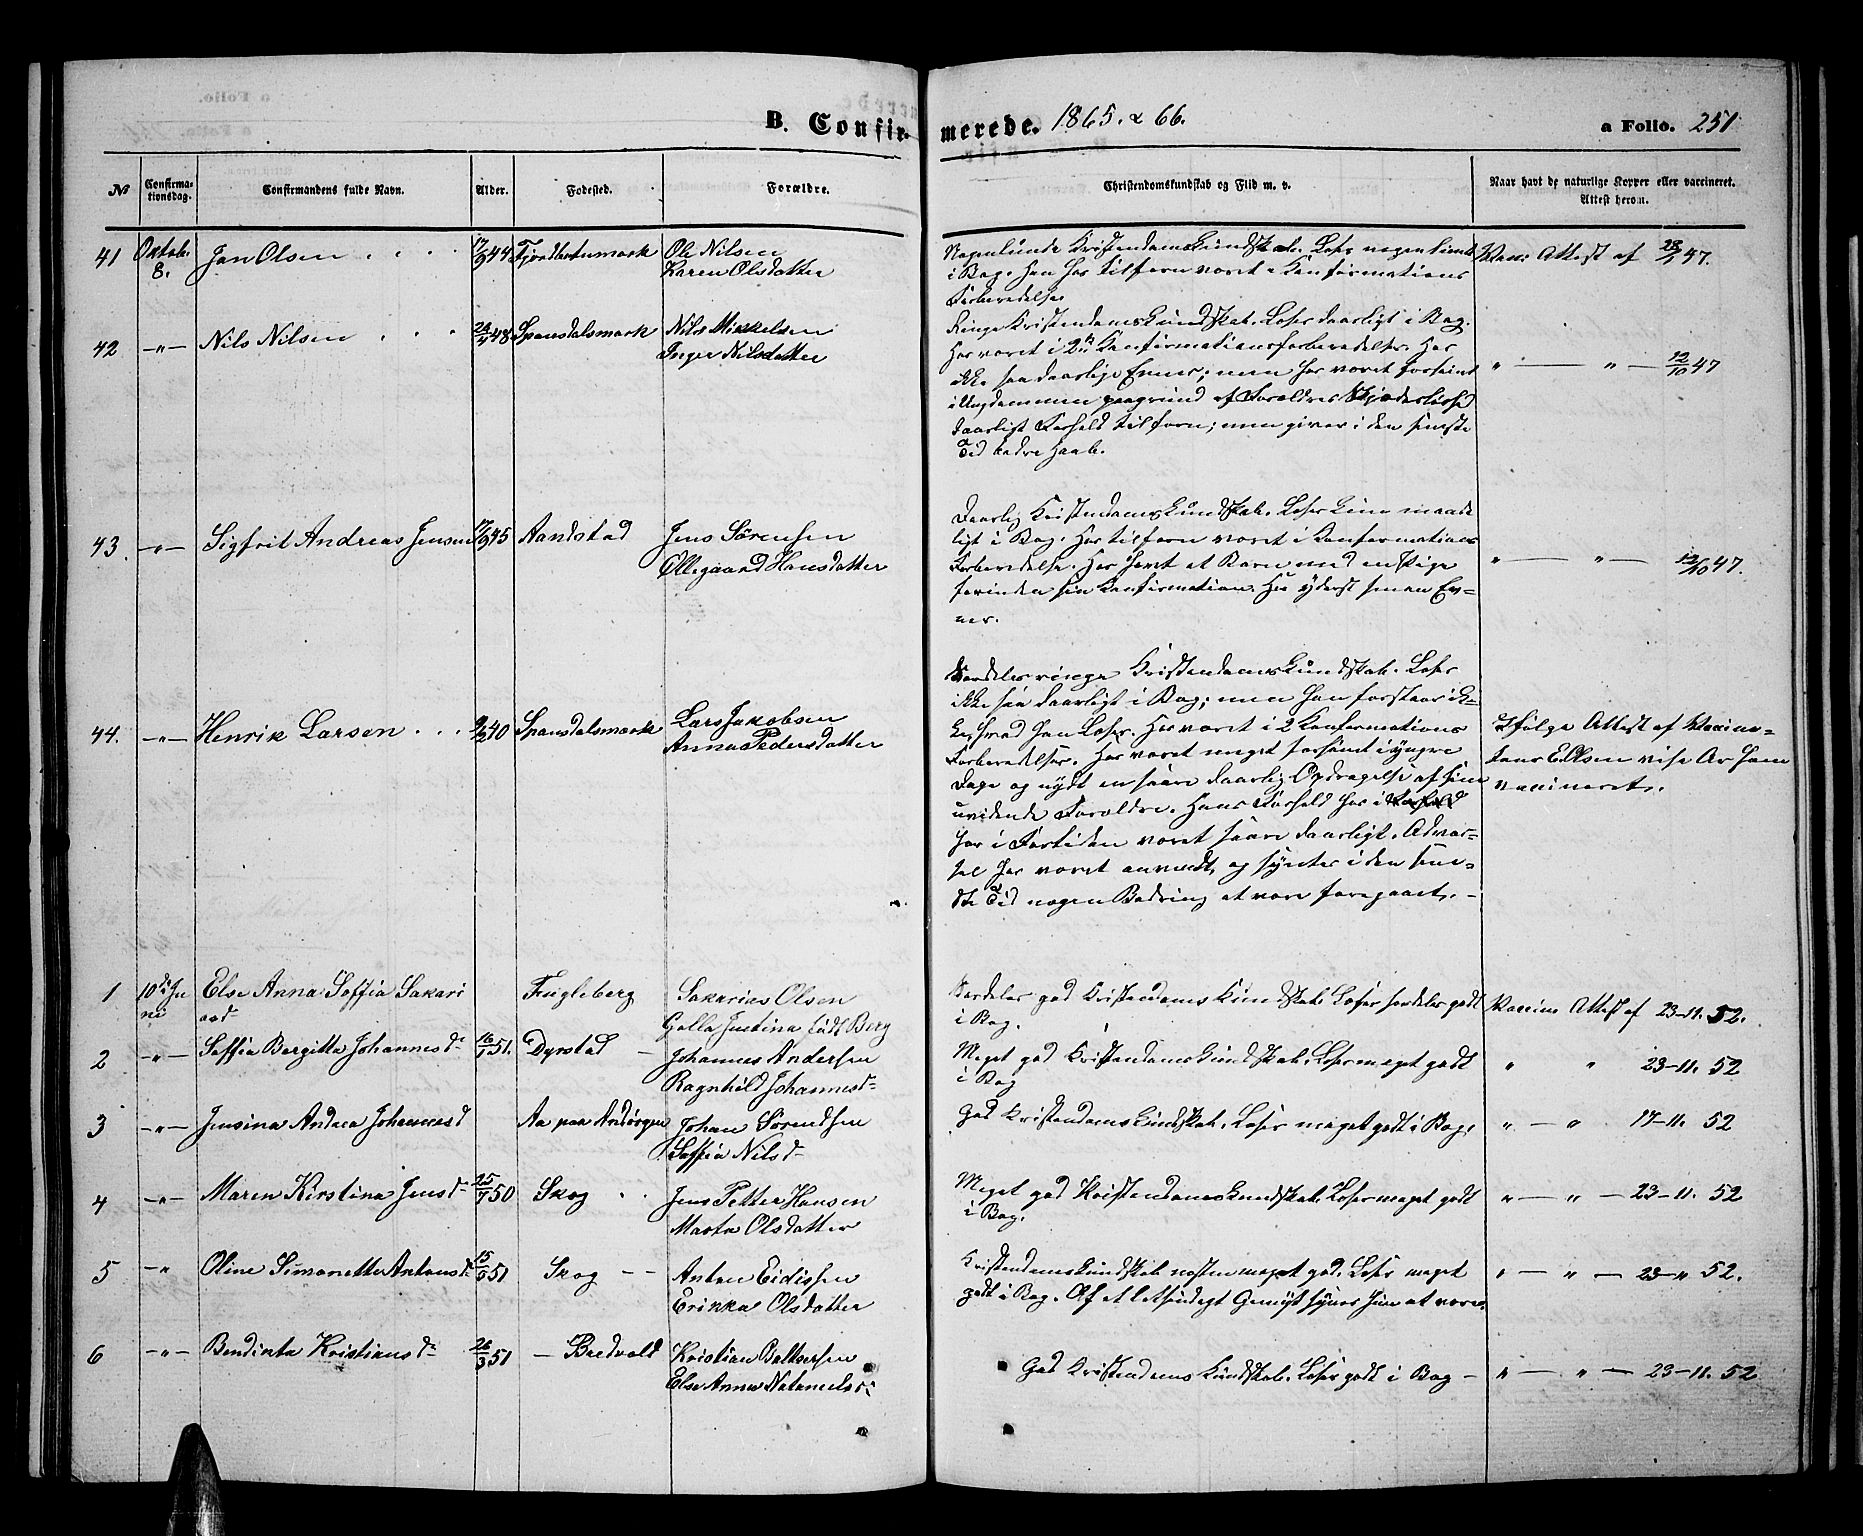 a Folio.
B. Confir-
merede. 1865. & 66.
a Folio. 251
№
Confirma-
tionsdag.
Confirmandens fulde Navn.
Alder.
Fødested.
Forældre.
Christendomskundskab og Flid m. v.
Naar havt de naturlige Kopper eller vaccineret.
Attest herom.
41 Oktob. 8. Jon Olsen 17/9 44 Ole Nilsen
Karen Olsdatter
Nogenlunde Kristendomskundskab. Læser nogenlunde
i Bog. Har tilforn været i Konfirmations
Forberedelse
Vacc. Attest af 28/ 47.
42 —"— Nils Nilsen 24/4 48 Spansdalsmark Nils Mikkelsen
Inger Nilsdatter
Ringe Kristendomskundskab. Læser daarligt i Bog.
Har været i 2de Konfirmationsforberedelser. Har
ikke saa daarlige Evner; men har været forsømt
i Ungdommen paagrund af Forældres
daarligt Forhold tilforn; men giver i den seneste
Tid bedre Haab.
" — " — 12/10 47
43. —"— Sigfrit Andreas Jensen 17/9 45 Aandstad Jens Sørensen
Ollegaard Hansdatter
Daarlig Kristendomskundskab. Læser kun maade
ligt i Bog. Har tilforn været i Konfirmations
Forberedelse. Har havt et Barn med en Pige
forinden sin Konfirmation. Har yderst smaa Ev-
ner.
" — " — 12/10 47.
44. —"— Henrik Larsen 9/2 40 Spansdalsmark Lars Jakobsen
Anna Pedersdatter
Særdeles ringe Kristendomskundskab. Læser
ikke saa daarligt i Bog; men han forstaar ik-
ke, hvad han læser. Har været i 2 Konfirmations
Forberedelser. Har været meget forsømt i yngre
Dage og nydt en saare daarlig Opdragelse af sine
uvidende Forældre. Hans Forhold har i Forhold
har i Fortiden været saare daarligt. Advar-
sel har været anvendt, og syntes i den sene-
ste Tid nogen Bedring at være foregaaet. -
Ifølge Attest af Vaccina-
vaccineret.
1 10de Ju
ni Else Anna Soffia Sakari
asd Fugleberg Sakarias Olsen
Golla Justina født Berg
Særdeles god Kristendoms Kundskab. Læser særdeles godt
i Bog.
Vaccine Attest af 23-11. 52.
2 —"— Soffia Bergitta Johannesd 16/1 51. Dyrstad — Johannes Andersen
Ragnhild Johannesd
Meget god Kristendomskundskab. Læser meget godt
i Bog
" " 23-11. 52
3 —"— Jensina Andrea Johannesd Aa paa Andørgen Johan Sørendsen
Soffia Nilsd
God Kristendomskundskab. Læser meget godt i Bog.
" — " 17-11. 52
4 —"— Maren Kirstina Jensd 25/7 50 Skog Jens Petter Hansen
Marta Olsdatter
Meget god Kristendomskundskab. Læser meget godt
i Bog.
" — " — 23-11. 52
5 —" Oline Simonette Antonsd 15/ 51 Skog — Anton Eidissen
Erikka Olsdatter
Kristendomskundskab næsten meget god. Læser meget
godt i Bog. Af et letsindigt Gemyt synes hun at være.
" — " — 23-" 52.
6 —"— Bendikta Kristiansd 26/3 51 — Bredvold Kristian Baltsersen
Else Anna Natanielsd:
God Kristendoms Kundskab. Læser godt i Bog —
" — " — 23-11. 52